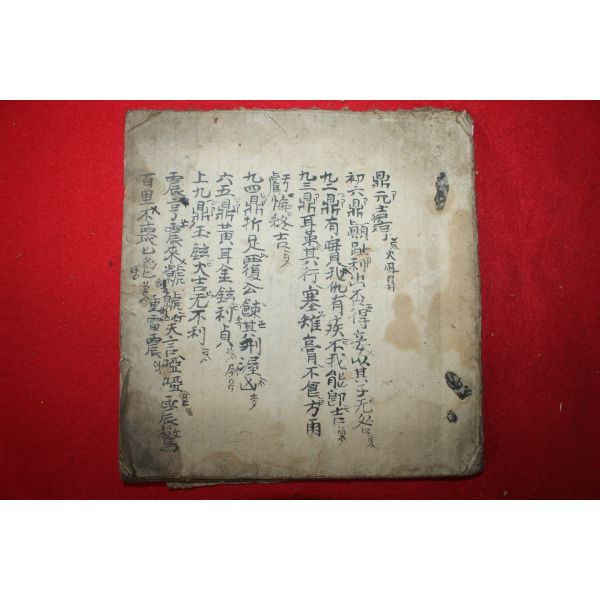 鼎元吉亨 火風鼎
初六鼎顚趾利出否得妾以其子无咎
九二鼎有實我仇有疾不我能卽吉
九三鼎耳革其行塞雉膏不食方雨
虧悔終吉
九四鼎折足覆公餗其形渥凶
六五鼎黃耳金鉉利貞
上九鼎玉鉉大吉无不利
震亨震來虩虩笑言啞啞震驚
百里不喪匕鬯 重雷震